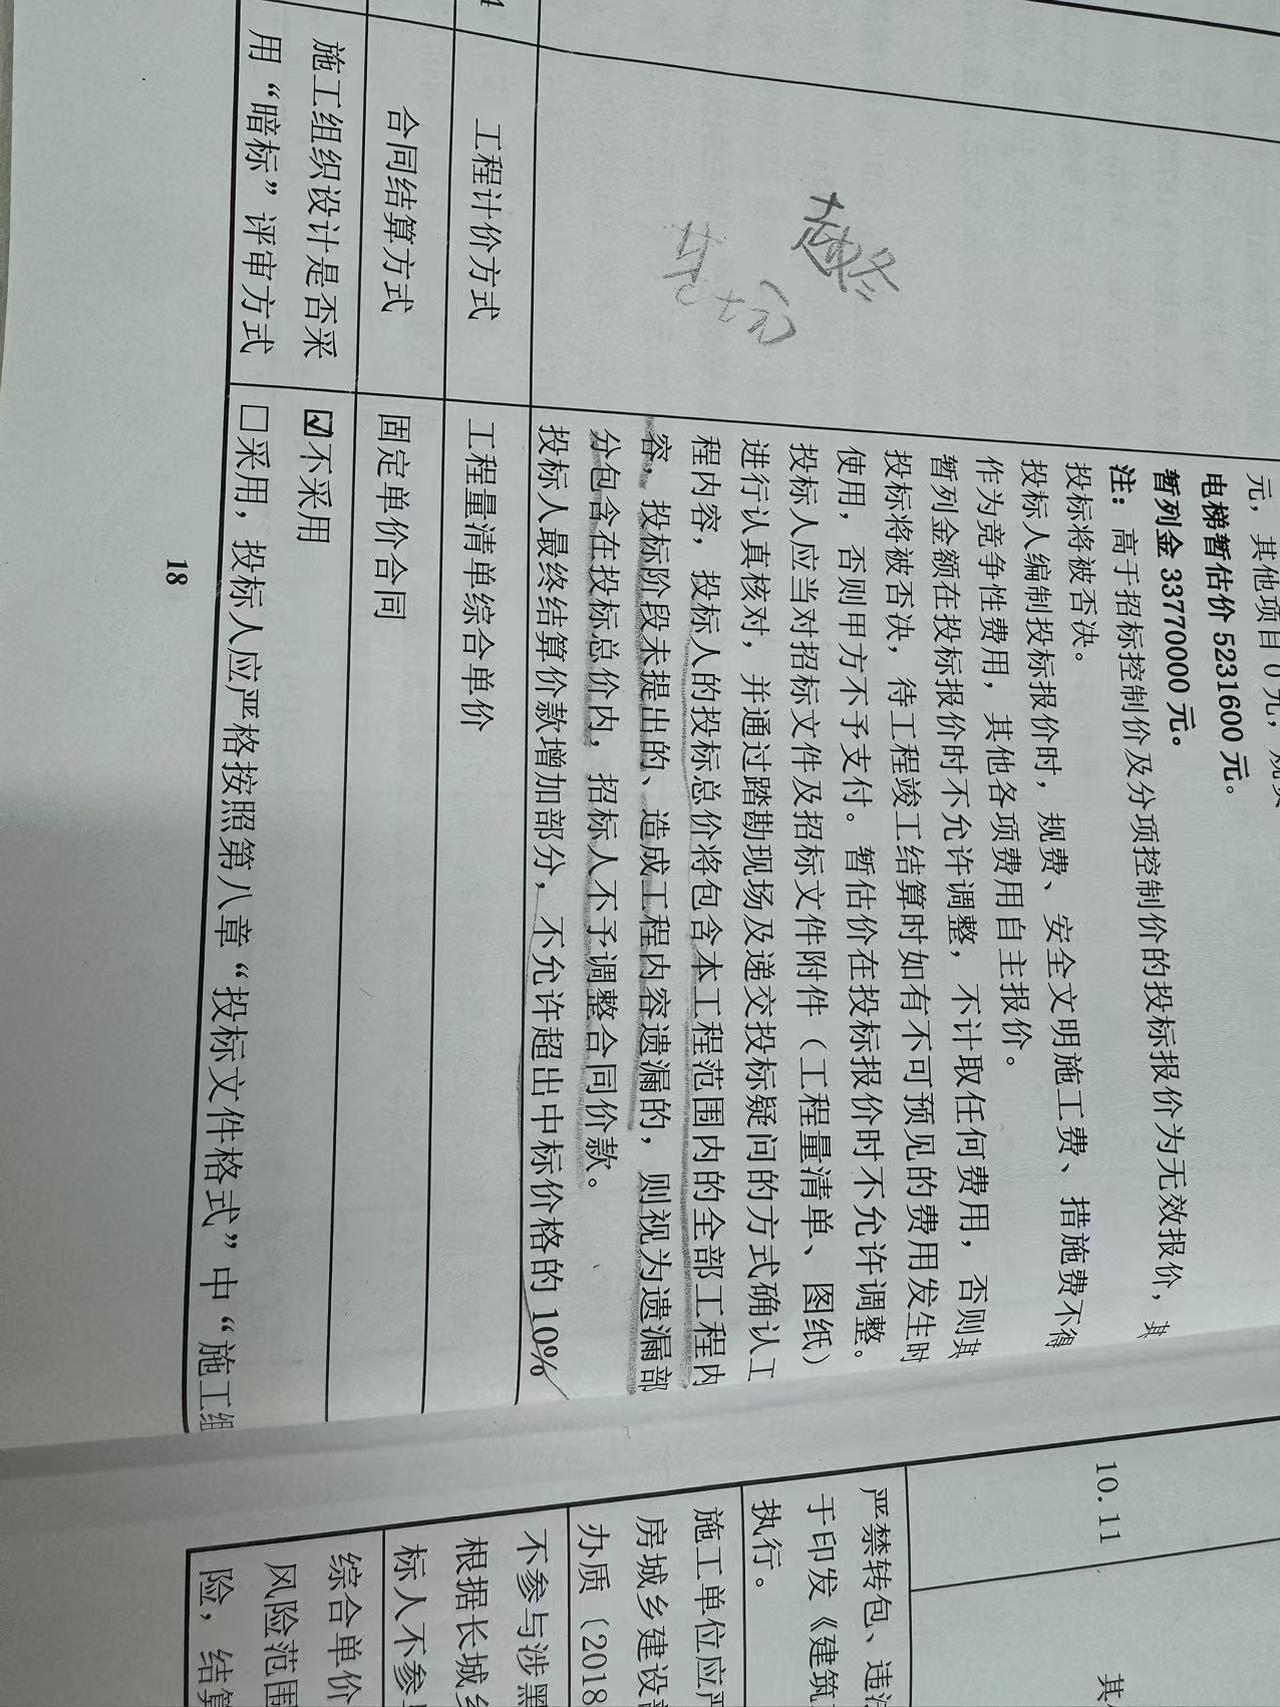 元，其他项目0元，规费
电梯暂估价 5231600 元。
暂列金 33770000 元。
注：高于招标控制价及分项控制价的投标报价为无效报价，其
投标将被否决。
投标人编制投标报价时，规费、安全文明施工费、措施费不得
作为竞争性费用，其他各项费用自主报价。
暂列金额在投标报价时不允许调整，不计取任何费用，否则其
投标将被否决，待工程竣工结算时如有不可预见的费用发生时
使用，否则甲方不予支付。暂估价在投标报价时不允许调整。
投标人应当对招标文件及招标文件附件（工程量清单、图纸）
进行认真核对，并通过踏勘现场及递交投标疑问的方式确认工
程内容，投标人的投标总价将包含本工程范围内的全部工程内
容，投标阶段未提出的、造成工程内容遗漏的，则视为遗漏部
分包含在投标总价内，招标人不予调整合同价款。
投标人最终结算价款增加部分，不允许超出中标价格的 10%
4
工程计价方式
工程量清单综合单价
合同结算方式
固定单价合同
施工组织设计是否采
用“暗标”评审方式
☑不采用
□采用，投标人应严格按照第八章“投标文件格式”中“施工组
18
10.11
其
严禁转包、违法
于印发《建筑
执行。
施工单位应严
房城乡建设
办质〔2018
不参与涉黑
根据长城
标人不参与
综合单价
风险范围
险，结算